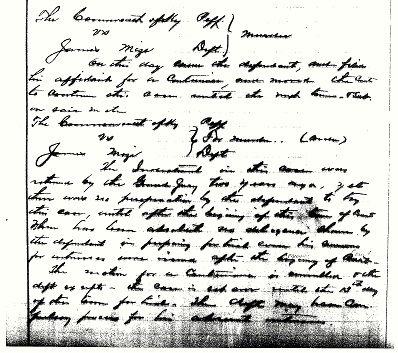 The Commonwealth of Ky Plff
vs Murder
James Mize Deft
On this day came the defendant, and filed
his affidavit for a Continuance and moved the Court
to continue this case until the next term
The Commonwealth of Ky Plff
vs For murder (order)
James Mize Deft
The Indictment in this case was
returned by the Grand Jury two years ago, yet
there was no preparation by the defendant to try
this case, until after the beginning of this term of Court
There has been absolute no diligence shown by
the defendant in preparing for trial even his summons
for witnesses were issued after the beginning of Court
The motion for a Continuance is overruled & the
deft excepts the case is set over until the 13th day
of this term for trial. The deft may have Com-
pulsory process for his absent